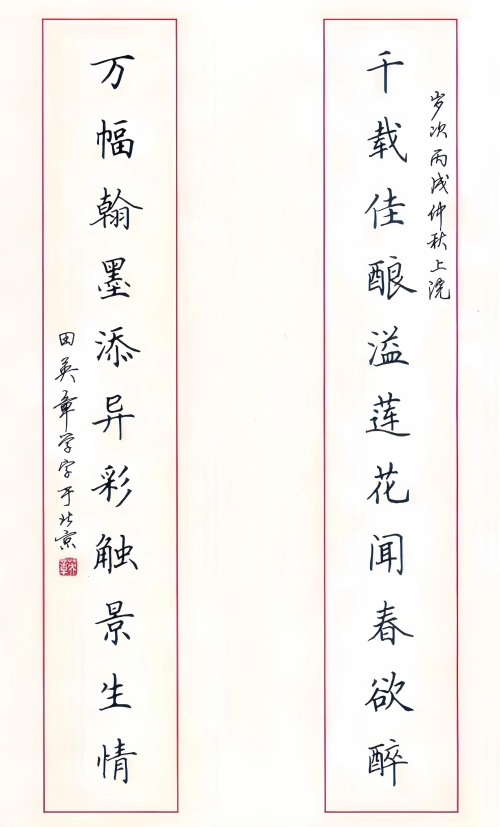 岁次丙戌仲秋上浣
千载佳酿溢莲花闻春欲醉
万幅翰墨添异彩触景生情
田英章学字于北京